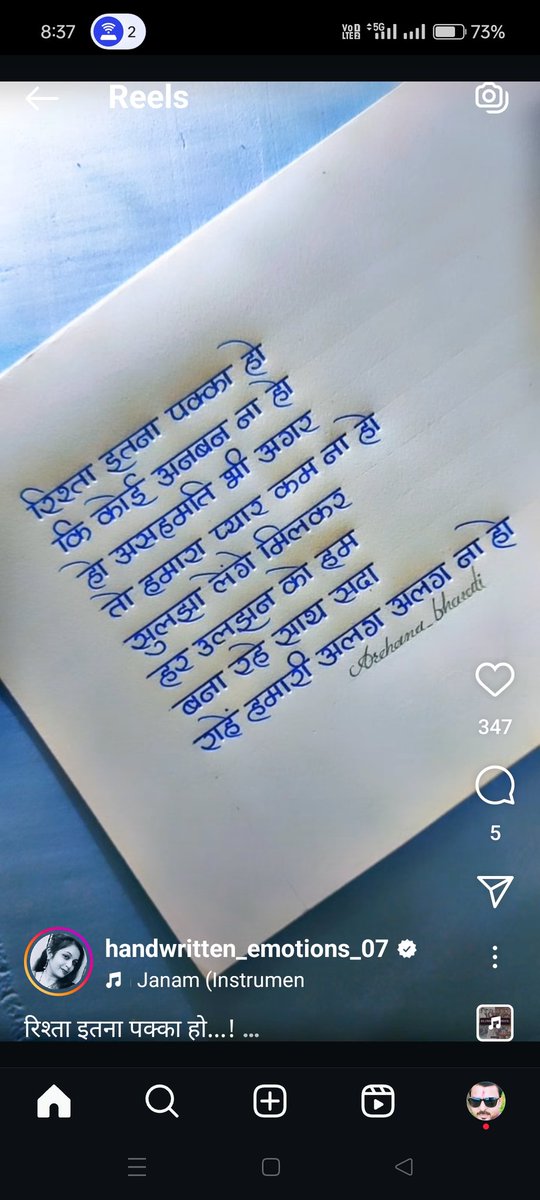 8:37
2
VoD LTED 5G 73%
Reels
रिश्ता इतना पक्का हो
कि कोई अनबन ना हो
हो असहमति भी अगर
तो हमारा प्यार कम ना हो
सुलझा लेंगे मिलकर
हर उलझन को हम
बना रहे साथ सदा
राहें हमारी अलग अलग ना हो
Archana_bharti
347
5
handwritten_emotions_07
Janam (Instrumen
रिश्ता इतना पक्का हो...! ...